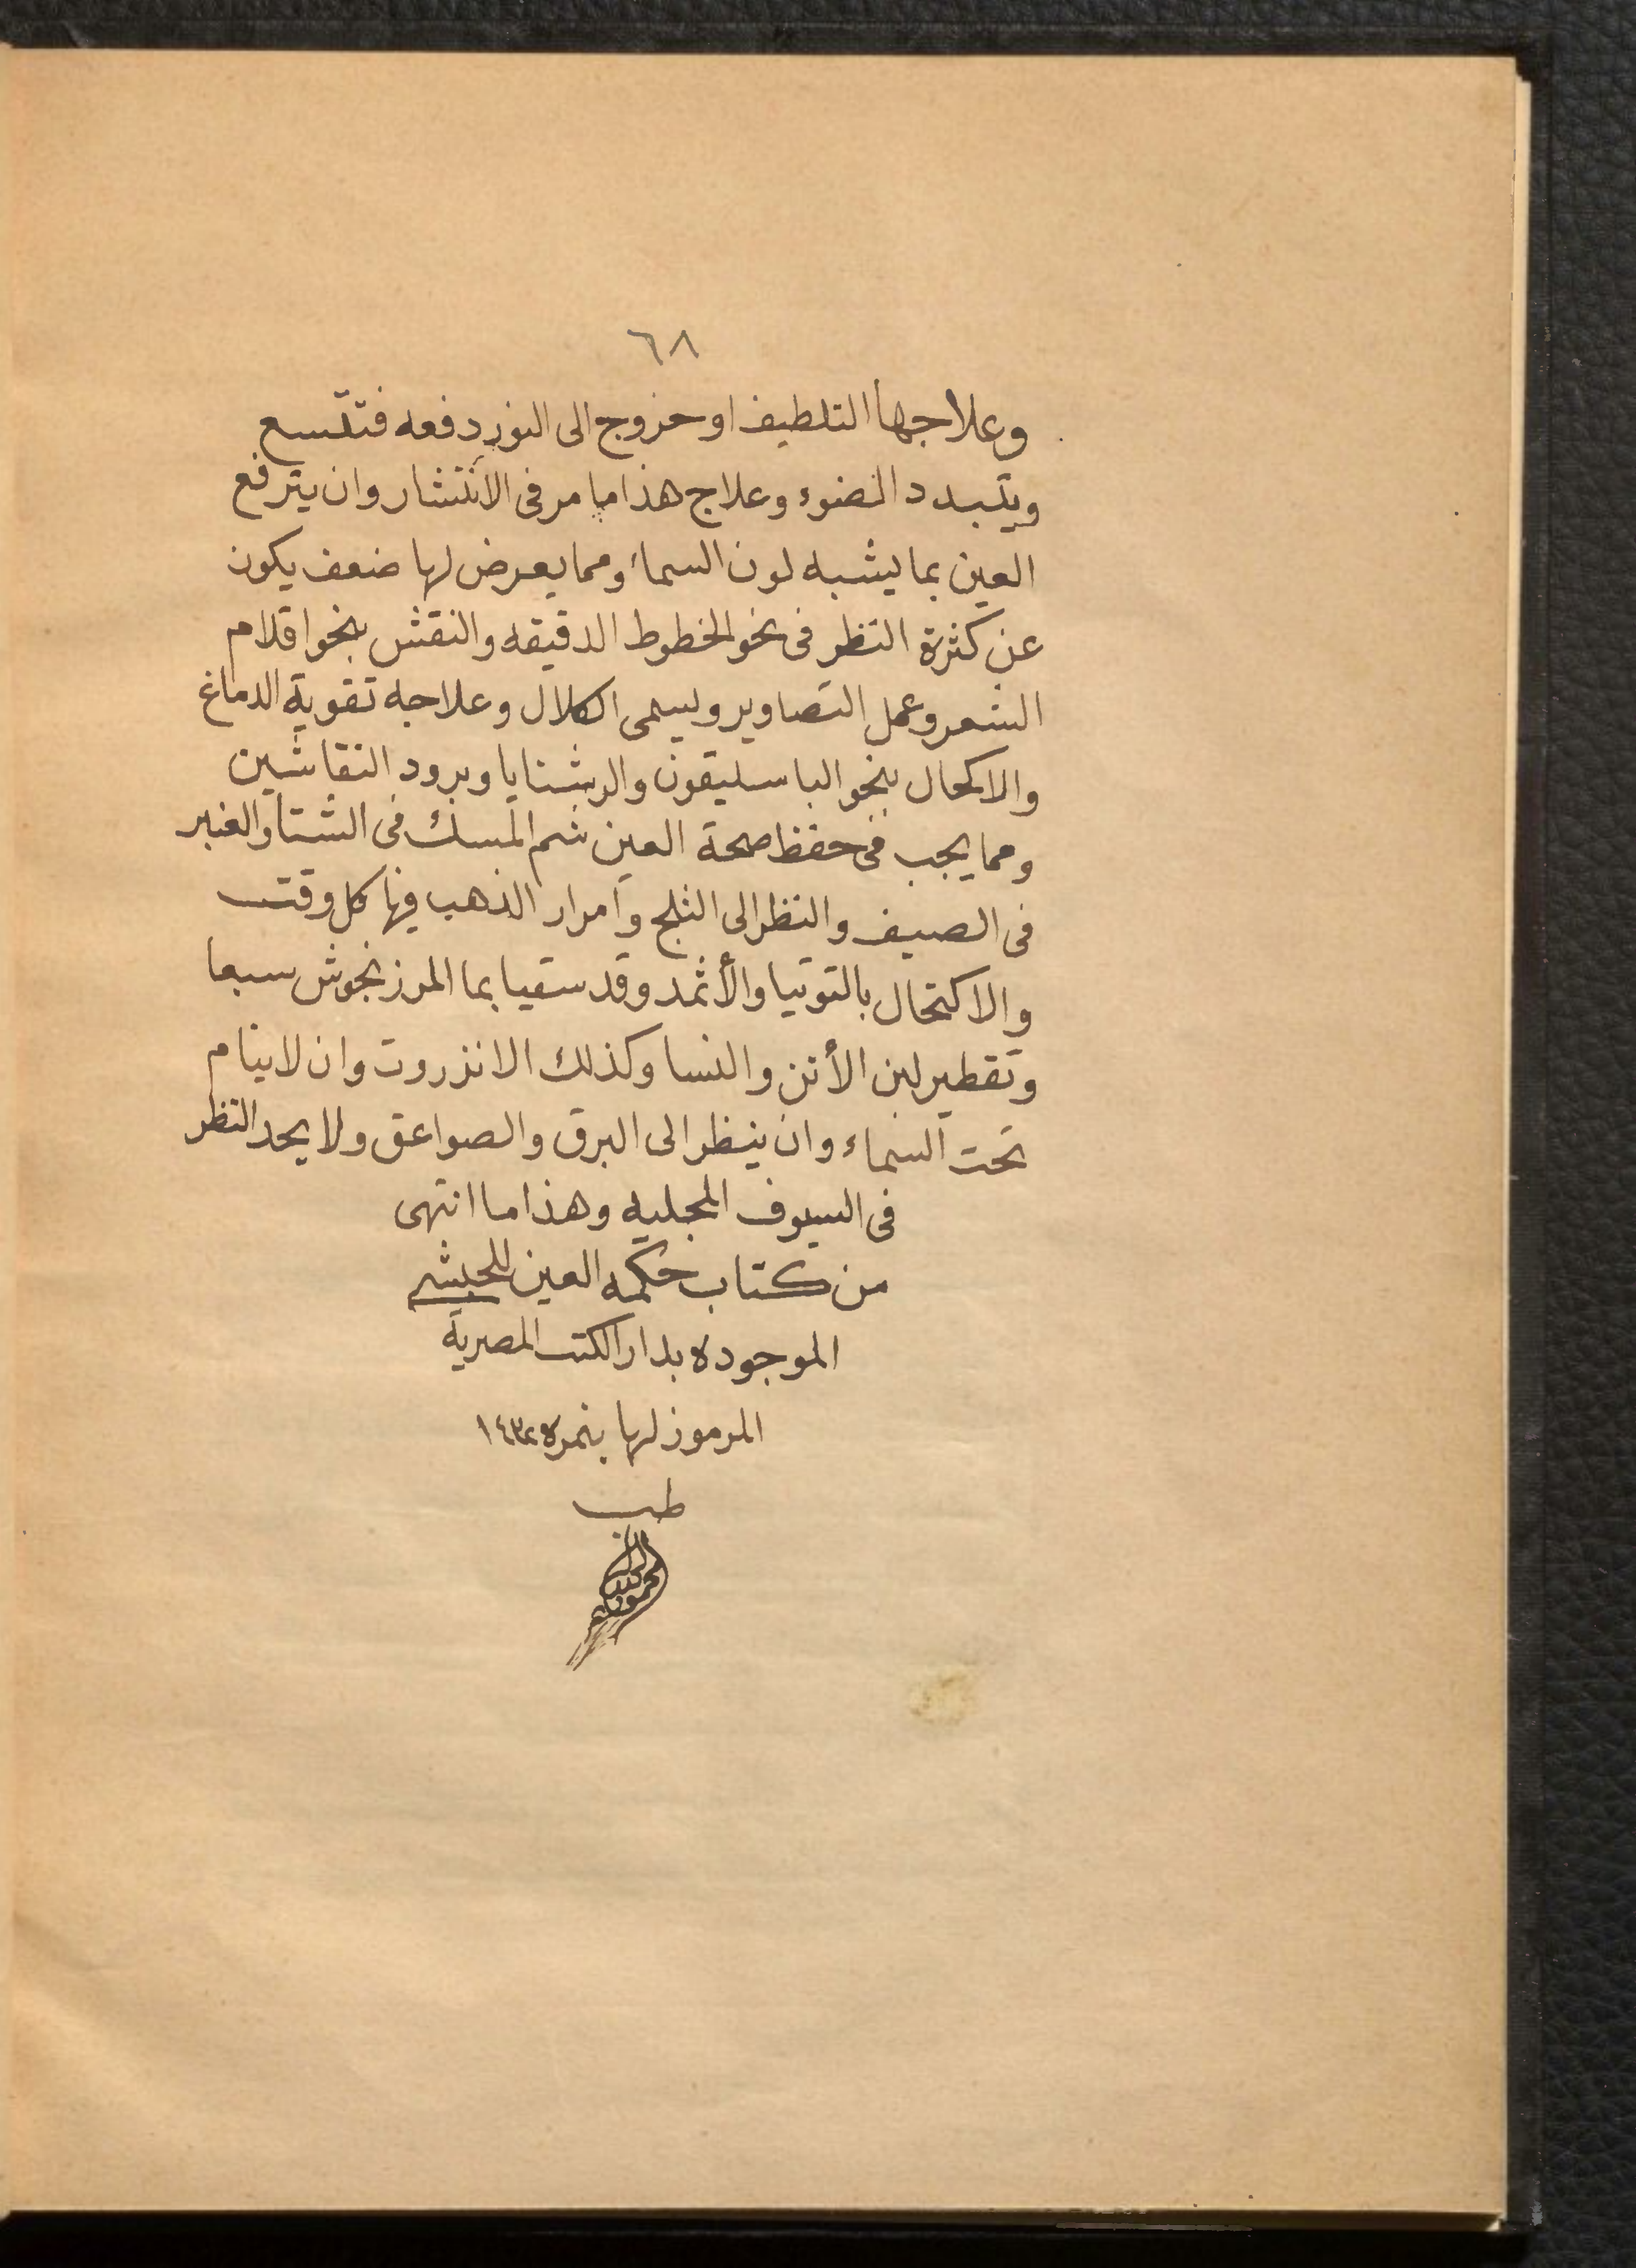 ٦٨
وعلاجها التلطيف او خروج الى النور دفعه فتتسع
ويتبدد الضوء وعلاج هذا ما مر فى الانتشار وان يترفع
العين بما يشبه لون السماء ومما يعرض لها ضعف يكون
عن كثرة النظر فى نحو الخطوط الدقيقه والنقش بنحو اقلام
الشعر وعمل التصاوير ويسمى الكلال وعلاجه تقوية الدماغ
والاكحال بنحو الباسليقون والرشنايا وبرود النقاشين
ومما يجب فى حفظ صحة العين شم المسك فى الشتا والعنبر
فى الصيف والنظر الى الثلج وامرار الذهب فيها كل وقت
والاكتحال بالتوتيا والأثمد وقد سقيا بما المرزنجوش سبعا
وتقطير لبن الأتن والنسا وكذلك الانزروت وان لا ينام
تحت السماء وان ينظر الى البرق والصواعق ولا يحد النظر
فى السيوف المجليه وهذا ما انتهى
من كتاب حكمه العين للحبشى
الموجوده بدار الكتب المصرية
المرموز لها بنمره ١٤٣٢
طب